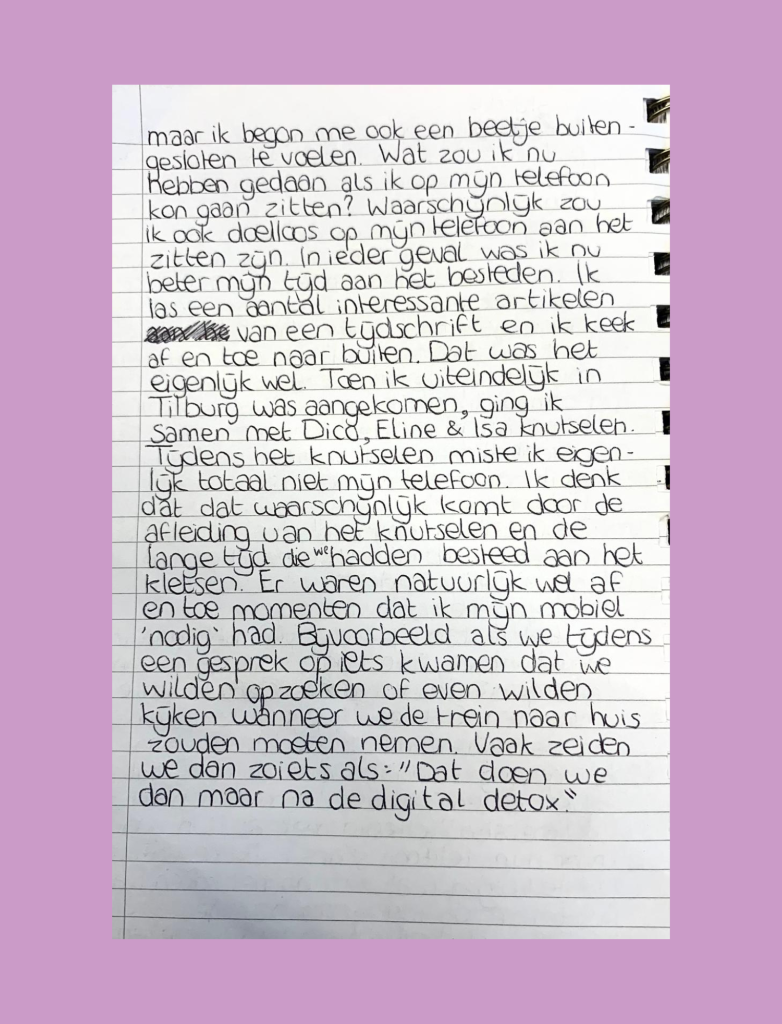 maar ik begon me ook een beetje buiten-
gesloten te voelen. Wat zou ik nu
hebben gedaan als ik op mijn telefoon
kon gaan zitten? Waarschijnlijk zou
ik ook doelloos op mijn telefoon aan het
zitten zijn. In ieder geval was ik nu
beter mijn tijd aan het besteden. Ik
las een aantal interessante artikelen
van een tijdschrift en ik keek
af en toe naar buiten. Dat was het
eigenlijk wel. Toen ik uiteindelijk in
Tilburg was aangekomen, ging ik
samen met Dico, Eline & Isa knutselen.
Tijdens het knutselen miste ik eigen-
lijk totaal niet mijn telefoon. Ik denk
dat dat waarschijnlijk komt door de
afleiding van het knutselen en de
lange tijd die we hadden besteed aan het
kletsen. Er waren natuurlijk wel af
en toe momenten dat ik mijn mobiel
'nodig' had. Bijvoorbeeld als we tijdens
een gesprek op iets kwamen dat we
wilden opzoeken of even wilden
kijken wanneer we de trein naar huis
zouden moeten nemen. Vaak zeiden
we dan zoiets als: "Dat doen we
dan maar na de digital detox."